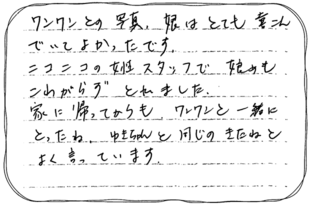 ワンワンとの写真、娘はとても喜こん
でいてよかったです。
ニコニコの女性スタッフで娘も
こわがらず とれました。
家に帰ってからも、ワンワンと一緒に
とったね、ゆきちゃんと同じのきたねと
よく言っています。